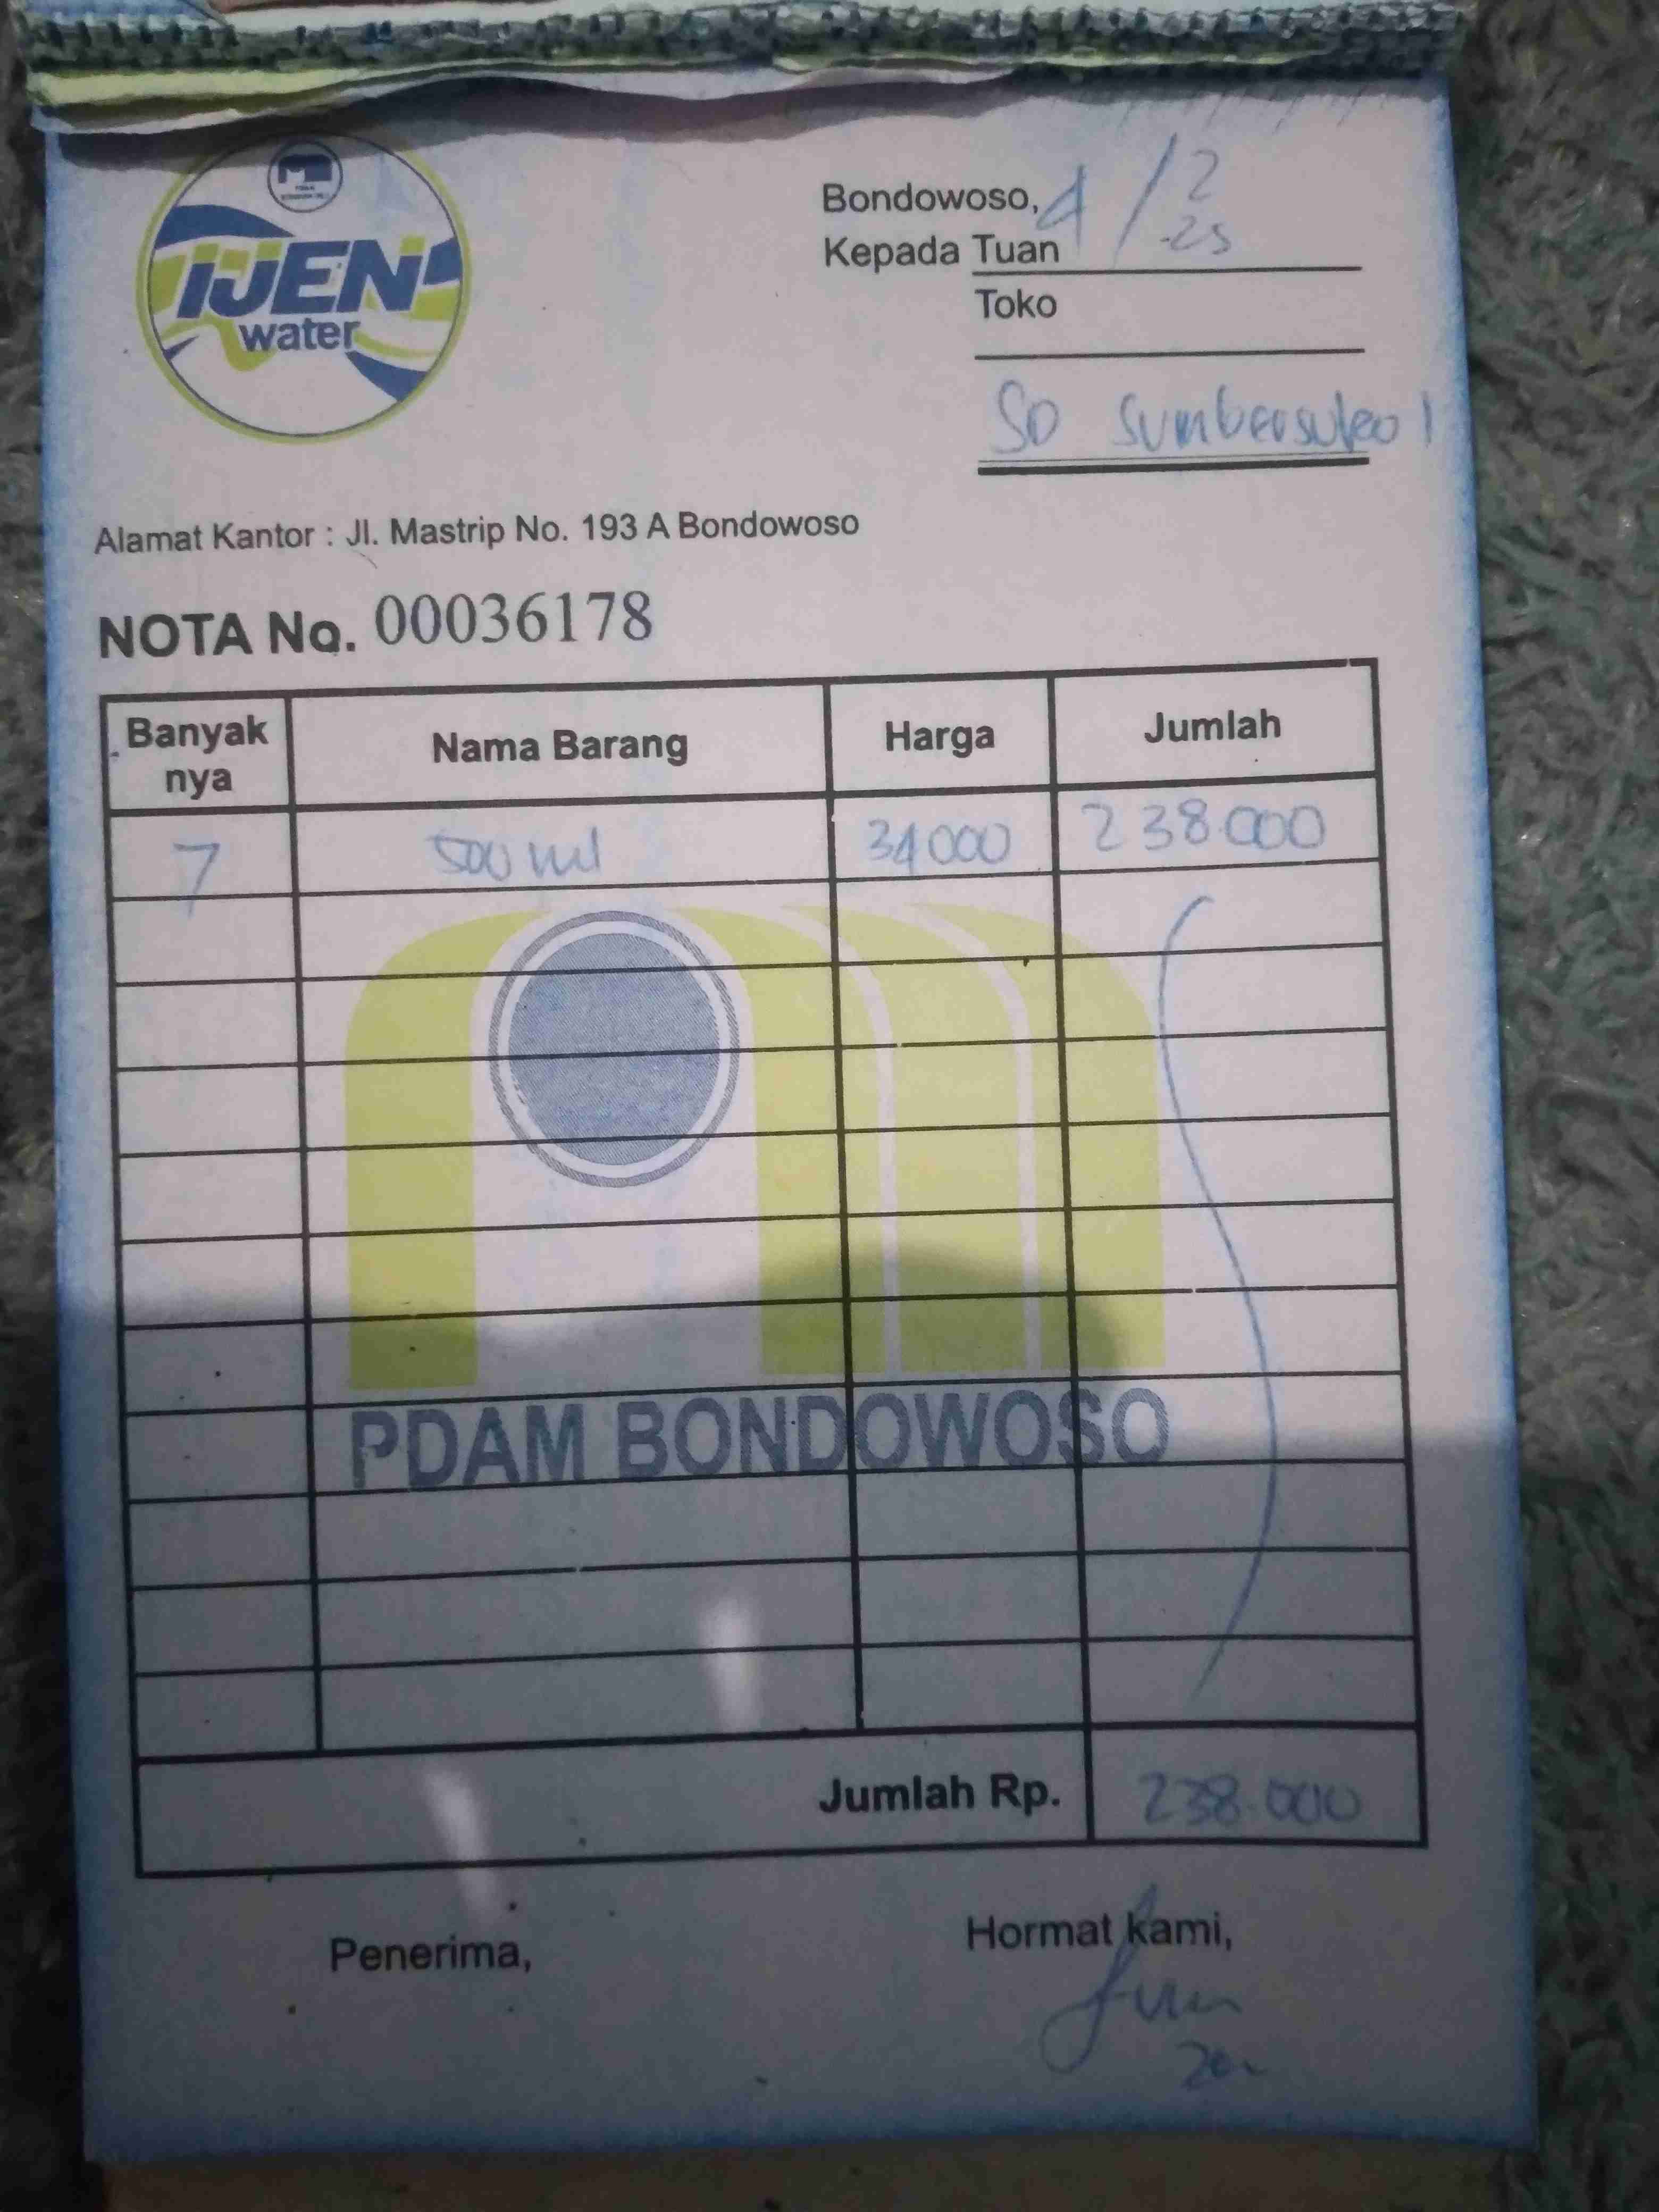 IJEN
water
Bondowoso, 4/2-25
Kepada Tuan
Toko
SD Sumbersuko 1
Alamat Kantor : Jl. Mastrip No. 193 A Bondowoso
NOTA No. 00036178
Banyak nya Nama Barang Harga Jumlah
7 500 ml 34000 238.000
PDAM BONDOWOSO
Jumlah Rp. 238.000
Penerima, Hormat kami,